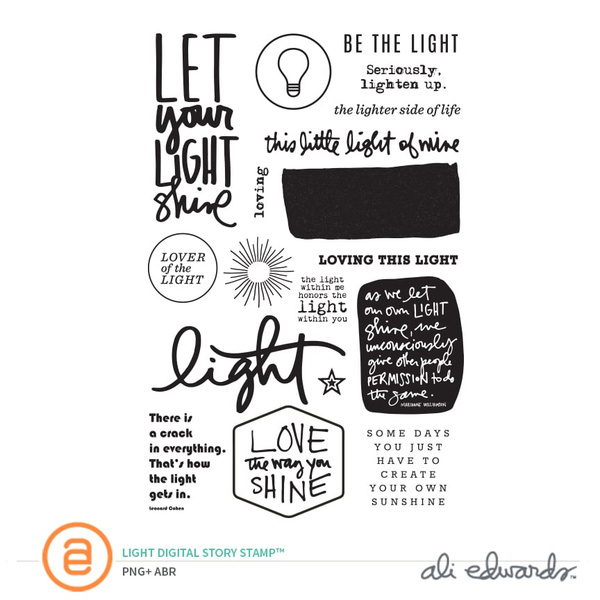 LET
your
LIGHT
shine
BE THE LIGHT
Seriously,
lighten up.
the lighter side of life
this little light of mine
loving
LOVER
of the
LIGHT
LOVING THIS LIGHT
the light
within me
honors the
light
within you
as we let
our own LIGHT
shine, we
unconsciously
give other people
PERMISSION to do
the same.
MARIANNE WILLIAMSON
light
There is
a crack
in everything.
That's how
the light
gets in.
Leonard Cohen
LOVE
the way you
SHINE
SOME DAYS
YOU JUST
HAVE TO
CREATE
YOUR OWN
SUNSHINE
ae
LIGHT DIGITAL STORY STAMP™
PNG+ ABR
ali edwards™